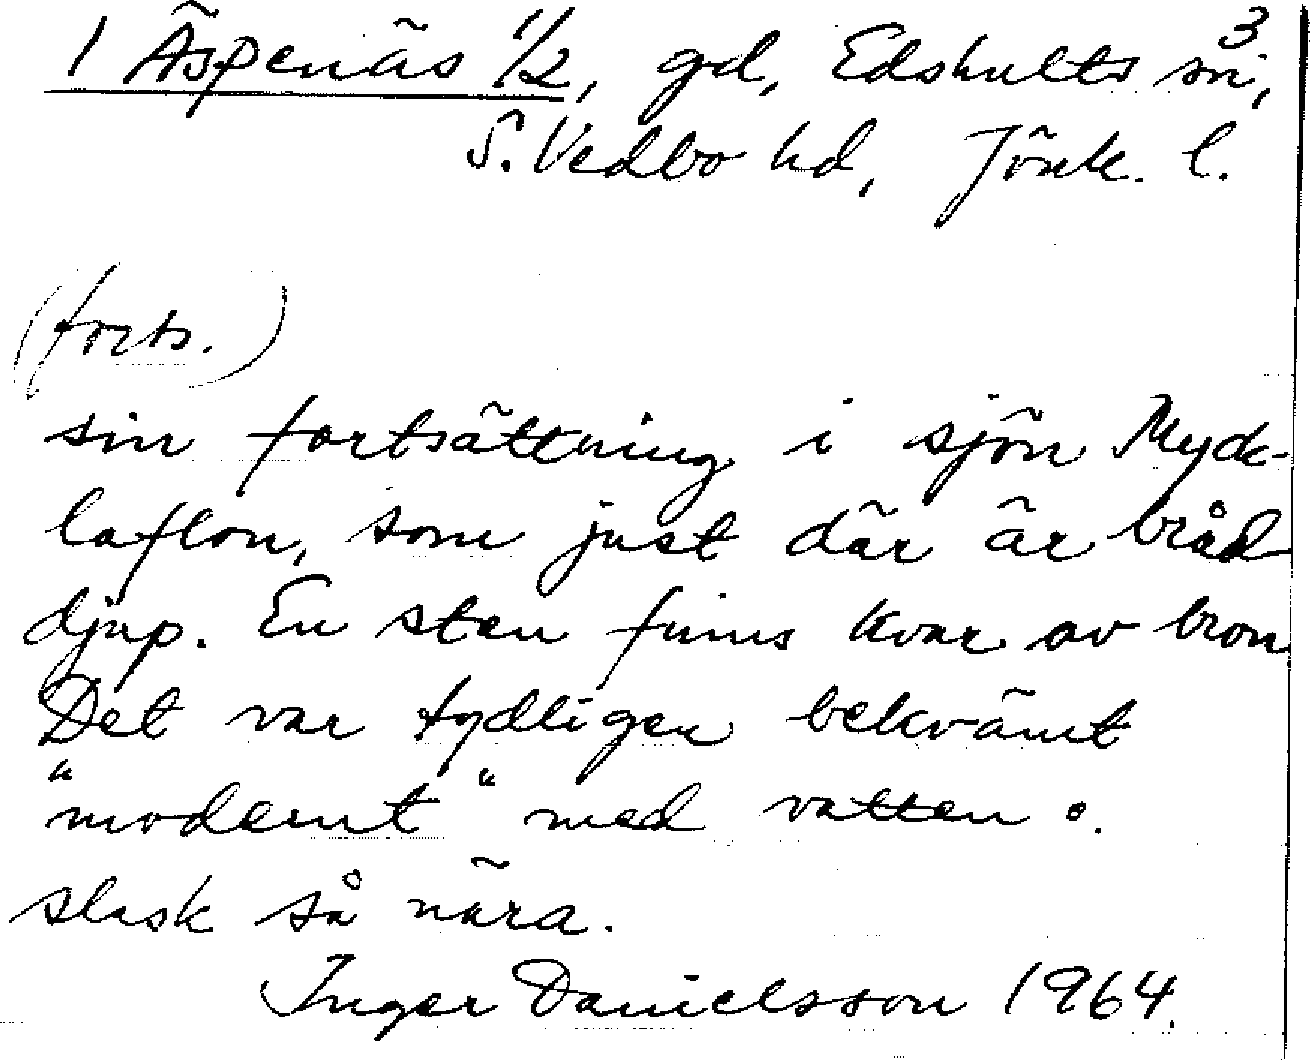 3
1 Äspenäs 1/2, gd, Edshults sn,
S. Vedbo hd, Jönk. l.
(forts.)
sin fortsättning i sjön Myck-
laflon, som just där är bråd
djup. En sten finns kvar av bron
Det var tydligen bekvämt
"modernt" med vatten o.
slask så nära.
Inger Danielsson 1964.